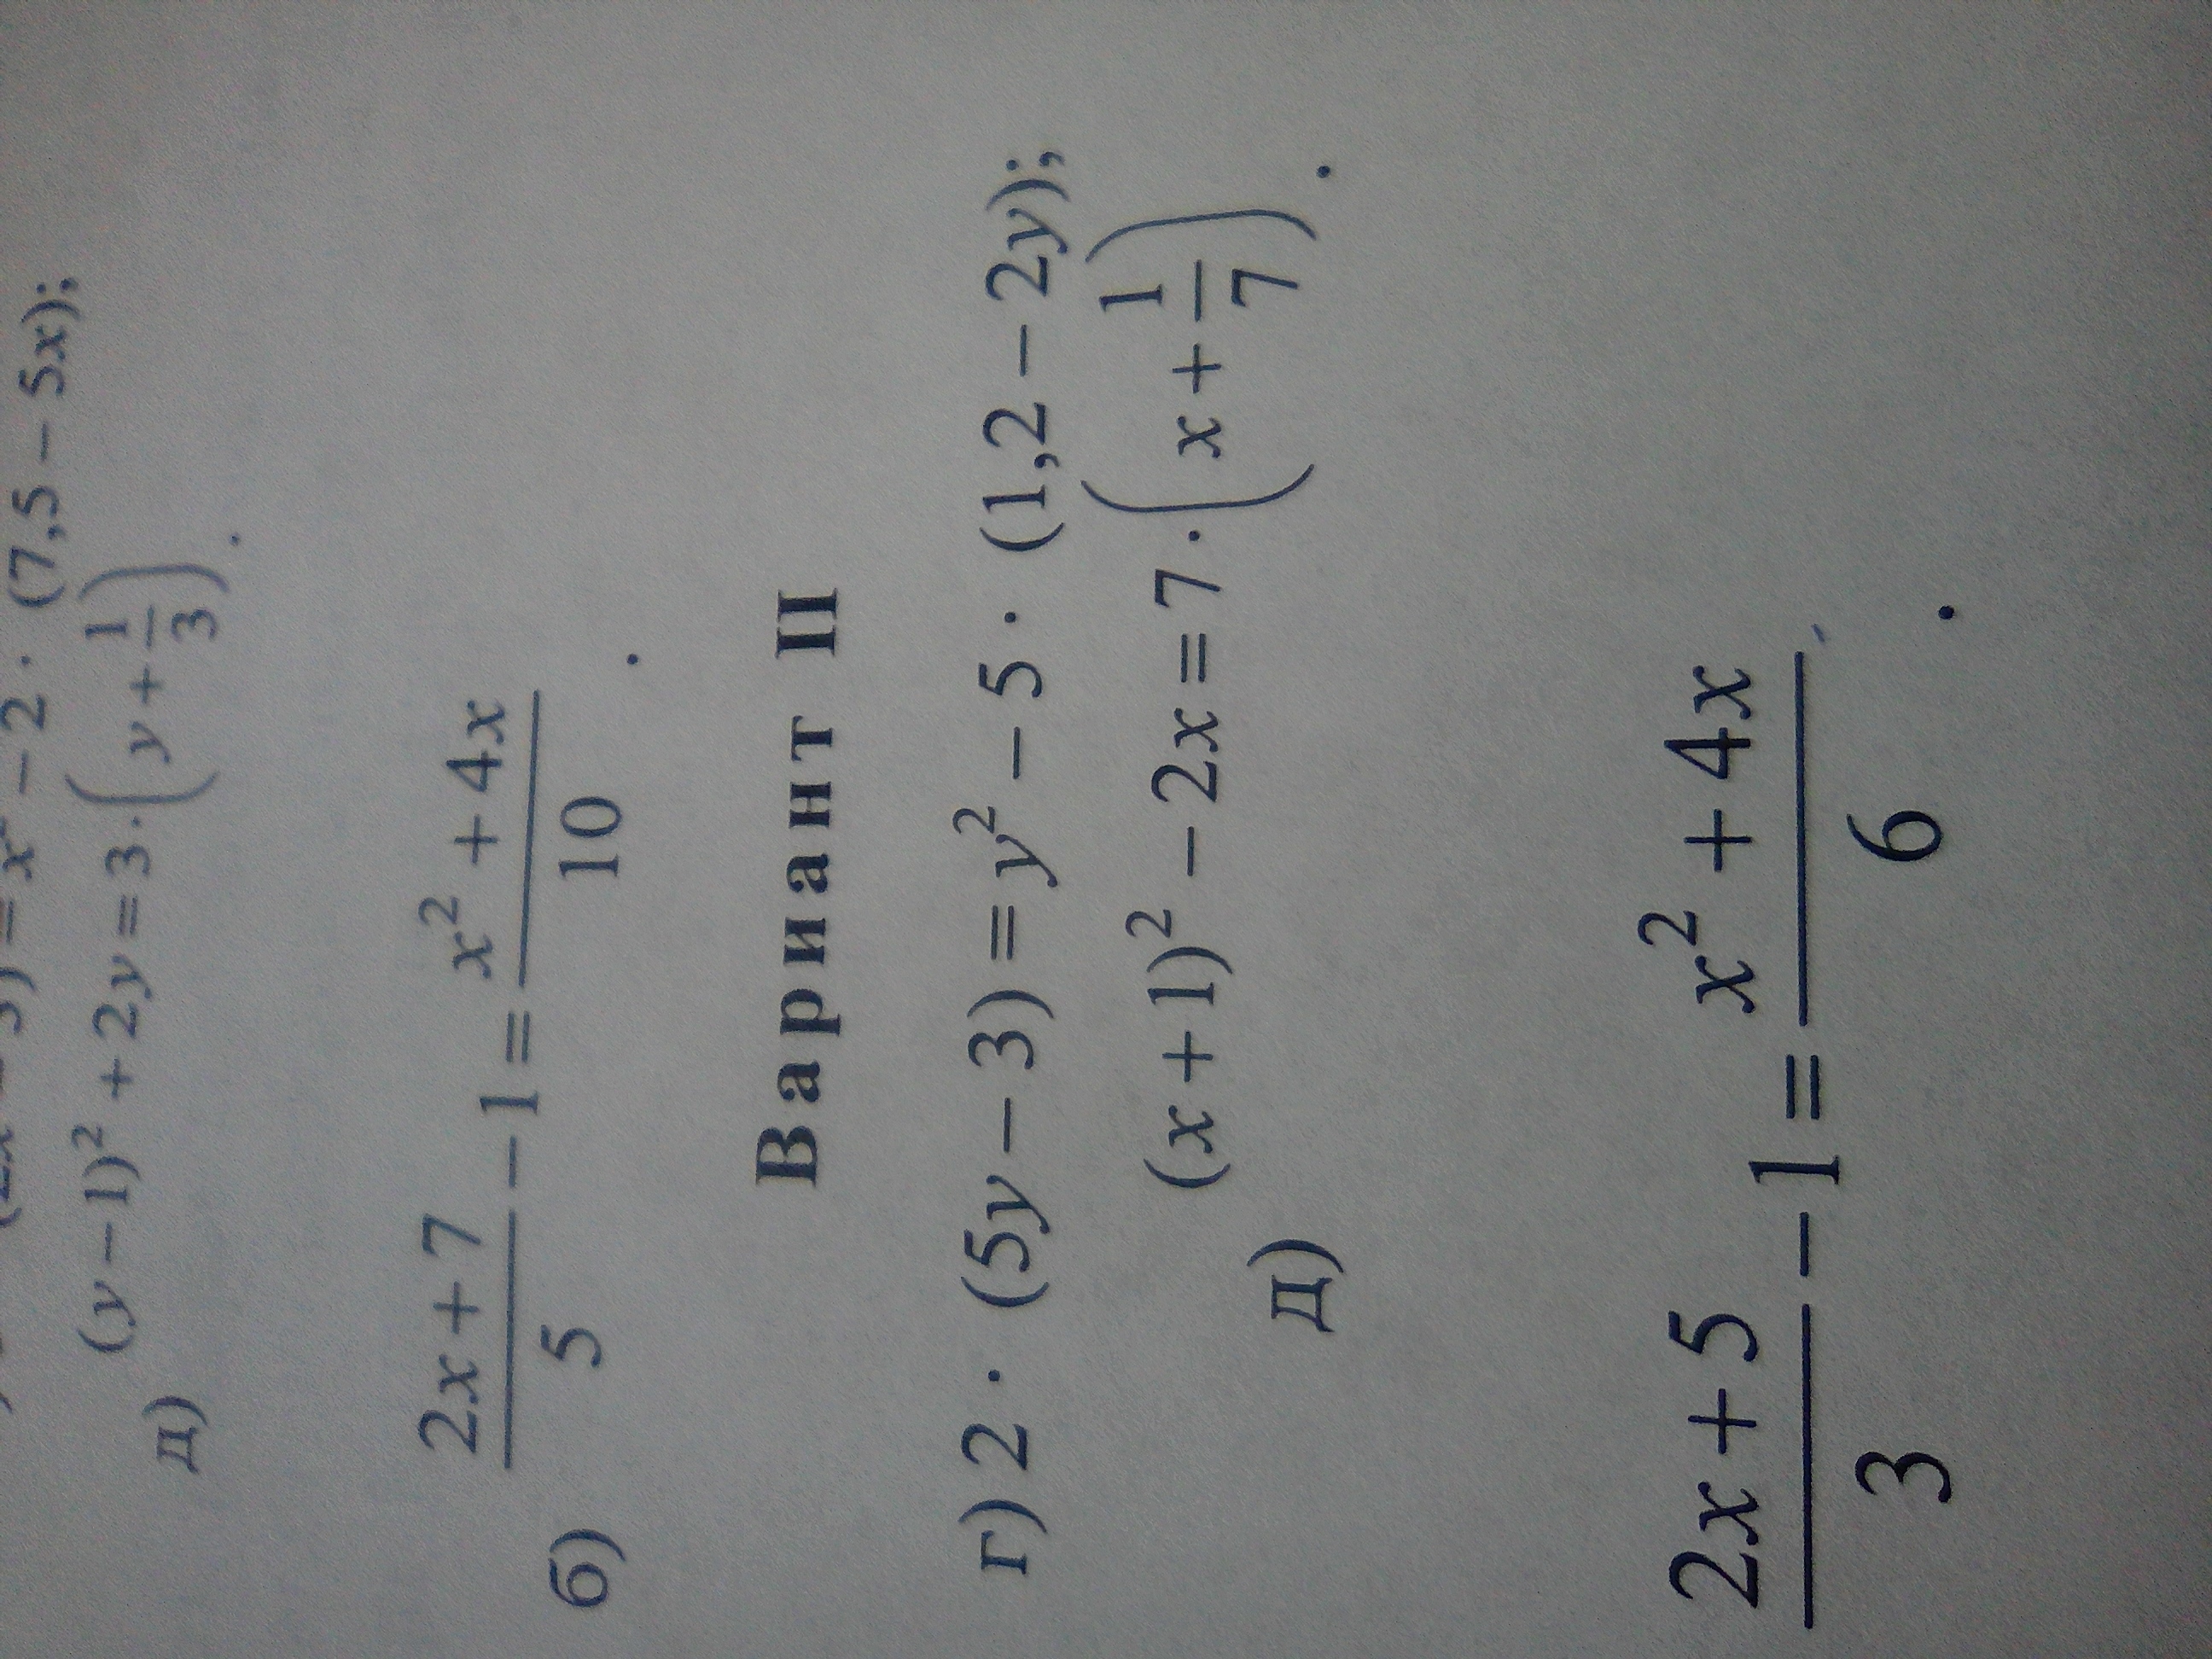 = x² − 2 · (7,5 − 5x);
д) (y − 1)² + 2y = 3 · (y + 1/3).
б) (2x + 7)/5 − 1 = (x² + 4x)/10.
Вариант II
г) 2 · (5y − 3) = y² − 5 · (1,2 − 2y);
д) (x + 1)² − 2x = 7 · (x + 1/7).
(2x + 5)/3 − 1 = (x² + 4x)/6.